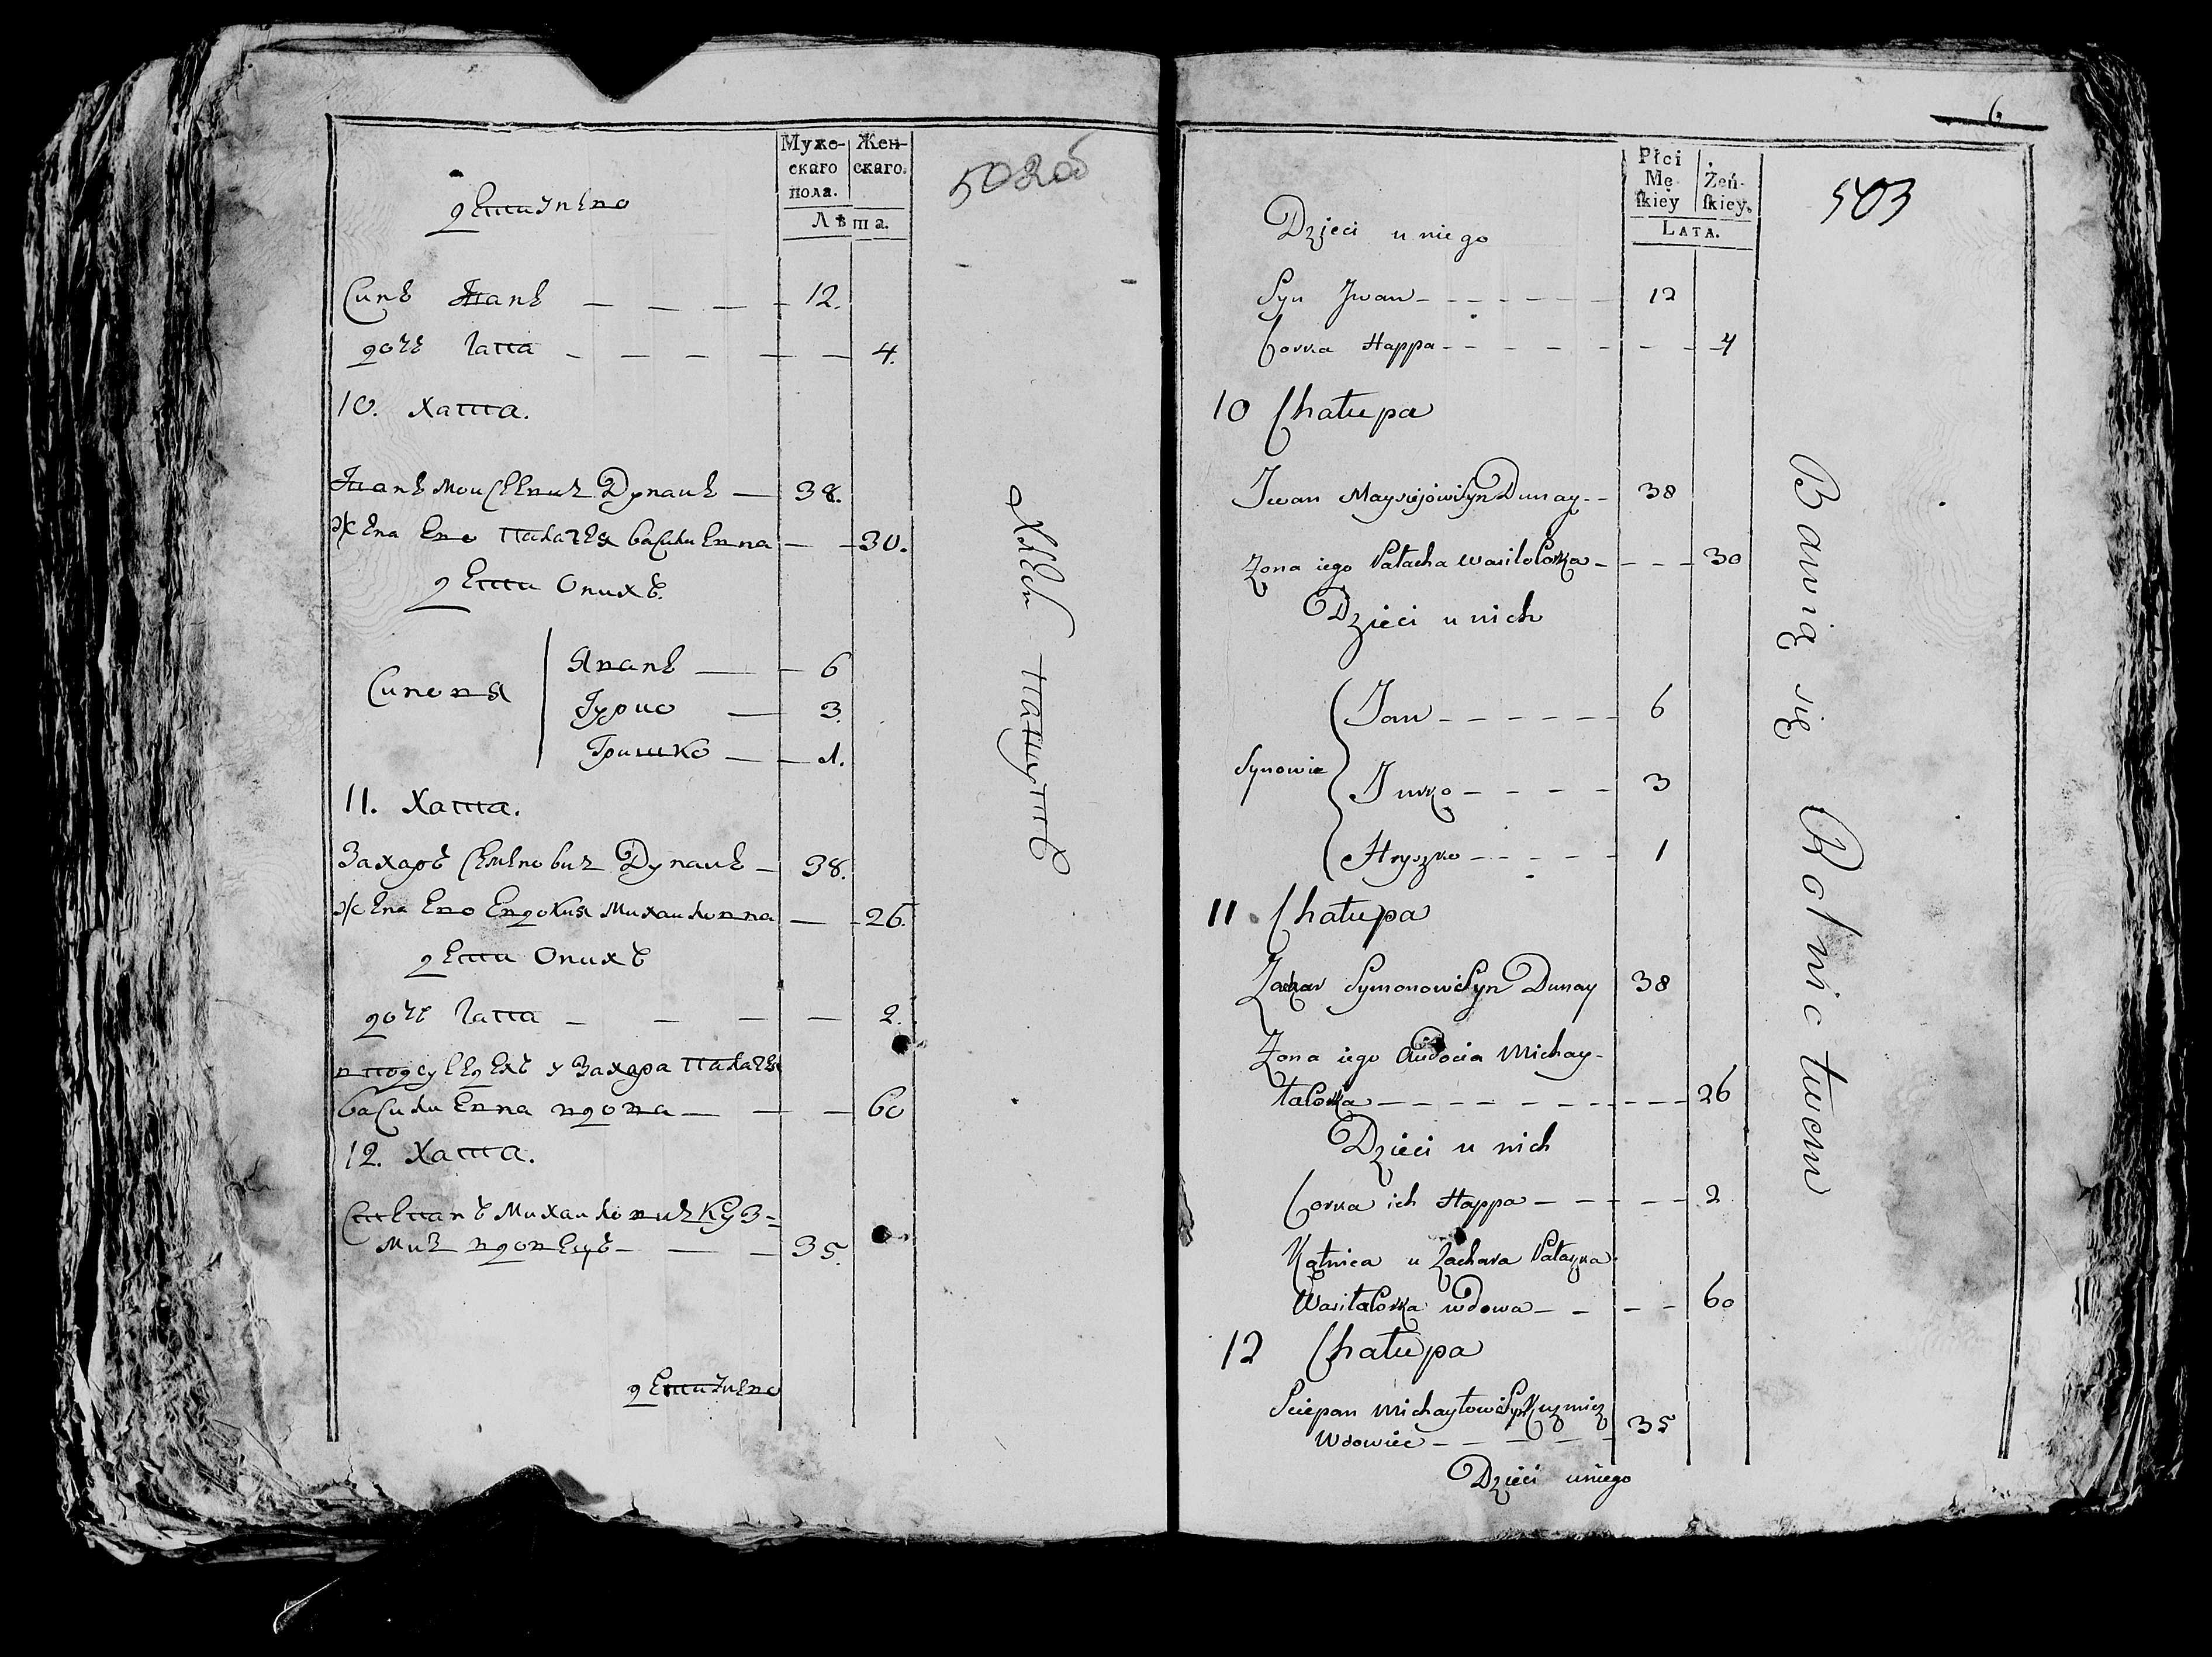 Муже-
скаго
пола.
Жен-
скаго.
Лѣта.
502об
дети унего
Синъ Иванъ — — — — 12.
дочь Гапа — — — — — 4.
10. Хата.
Иванъ Моисеевич Дунаи — 38.
жена его Палагея Василевна — — 30.
дети Онихъ
Синовя
Иванъ — — 6
Юрко — 3.
Гришко — — 1.
11. Хата.
Захаръ Семенович Дунаи — 38.
жена его Евдокия Михаиловна — — 26.
дети Онихъ
дочь Гапа — — — — 2.
в подсуседехъ у Захара Палагея
Василевна вдова — — — 60
12. Хата.
Степанъ Михаилович Куз=
мич вдовецъ — — — 35.
дети унего
6
Płci
Mę
ſkiey
Żeń-
ſkiey.
LATA.
503
Dzieci u niego
Syn Jwan - - - - - - 12
Corka Happa - - - - - - - - 4
10 Chałupa
Jwan Moysiejow Syn Dunay - - 38
Żona iego Pałacha Wasilo Corka - - - - 30
Dzieci u nich
Synowie
Jan - - - - - - 6
Jurko - - - - 3
Hryszko - - - - - 1
11 Chałupa
Zachar Symonow Syn Dunay 38
Żona iego Audocia Michay-
ła Corka - - - - - - - - - - - 26
Dzieci u nich
Corka ich Happa - - - - - 2
Kątnica u Zachara
Wasila Corka wdowa - - - - 60
12 Chałupa
Sciepan Michayłow Syn Kuzmicz
Wdowiec - - - - - 35
Dzieci uniego
Bawią się Rolnictwem